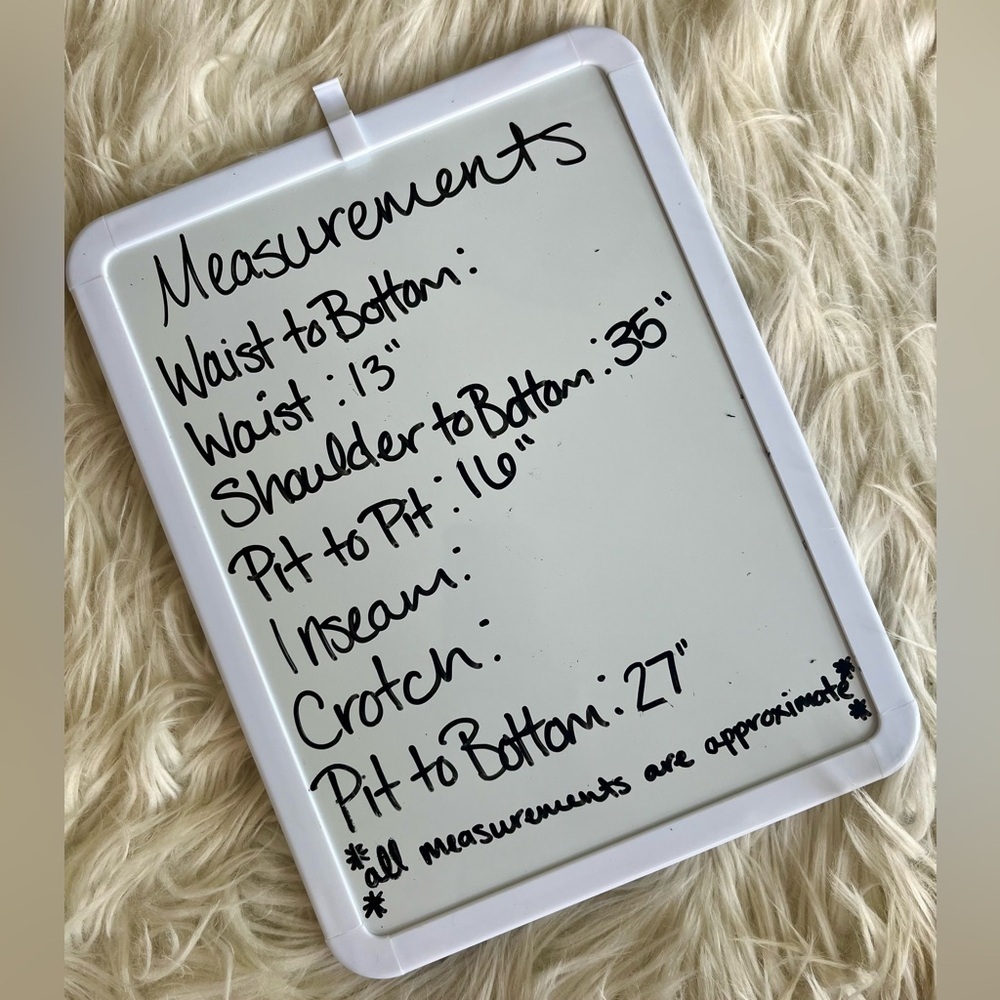 Measurements
Waist to Bottom:
Waist: 13"
Shoulder to Bottom: 35"
Pit to Pit: 16"
Inseam:
Crotch:
Pit to Bottom: 27"
**all measurements are approximate**